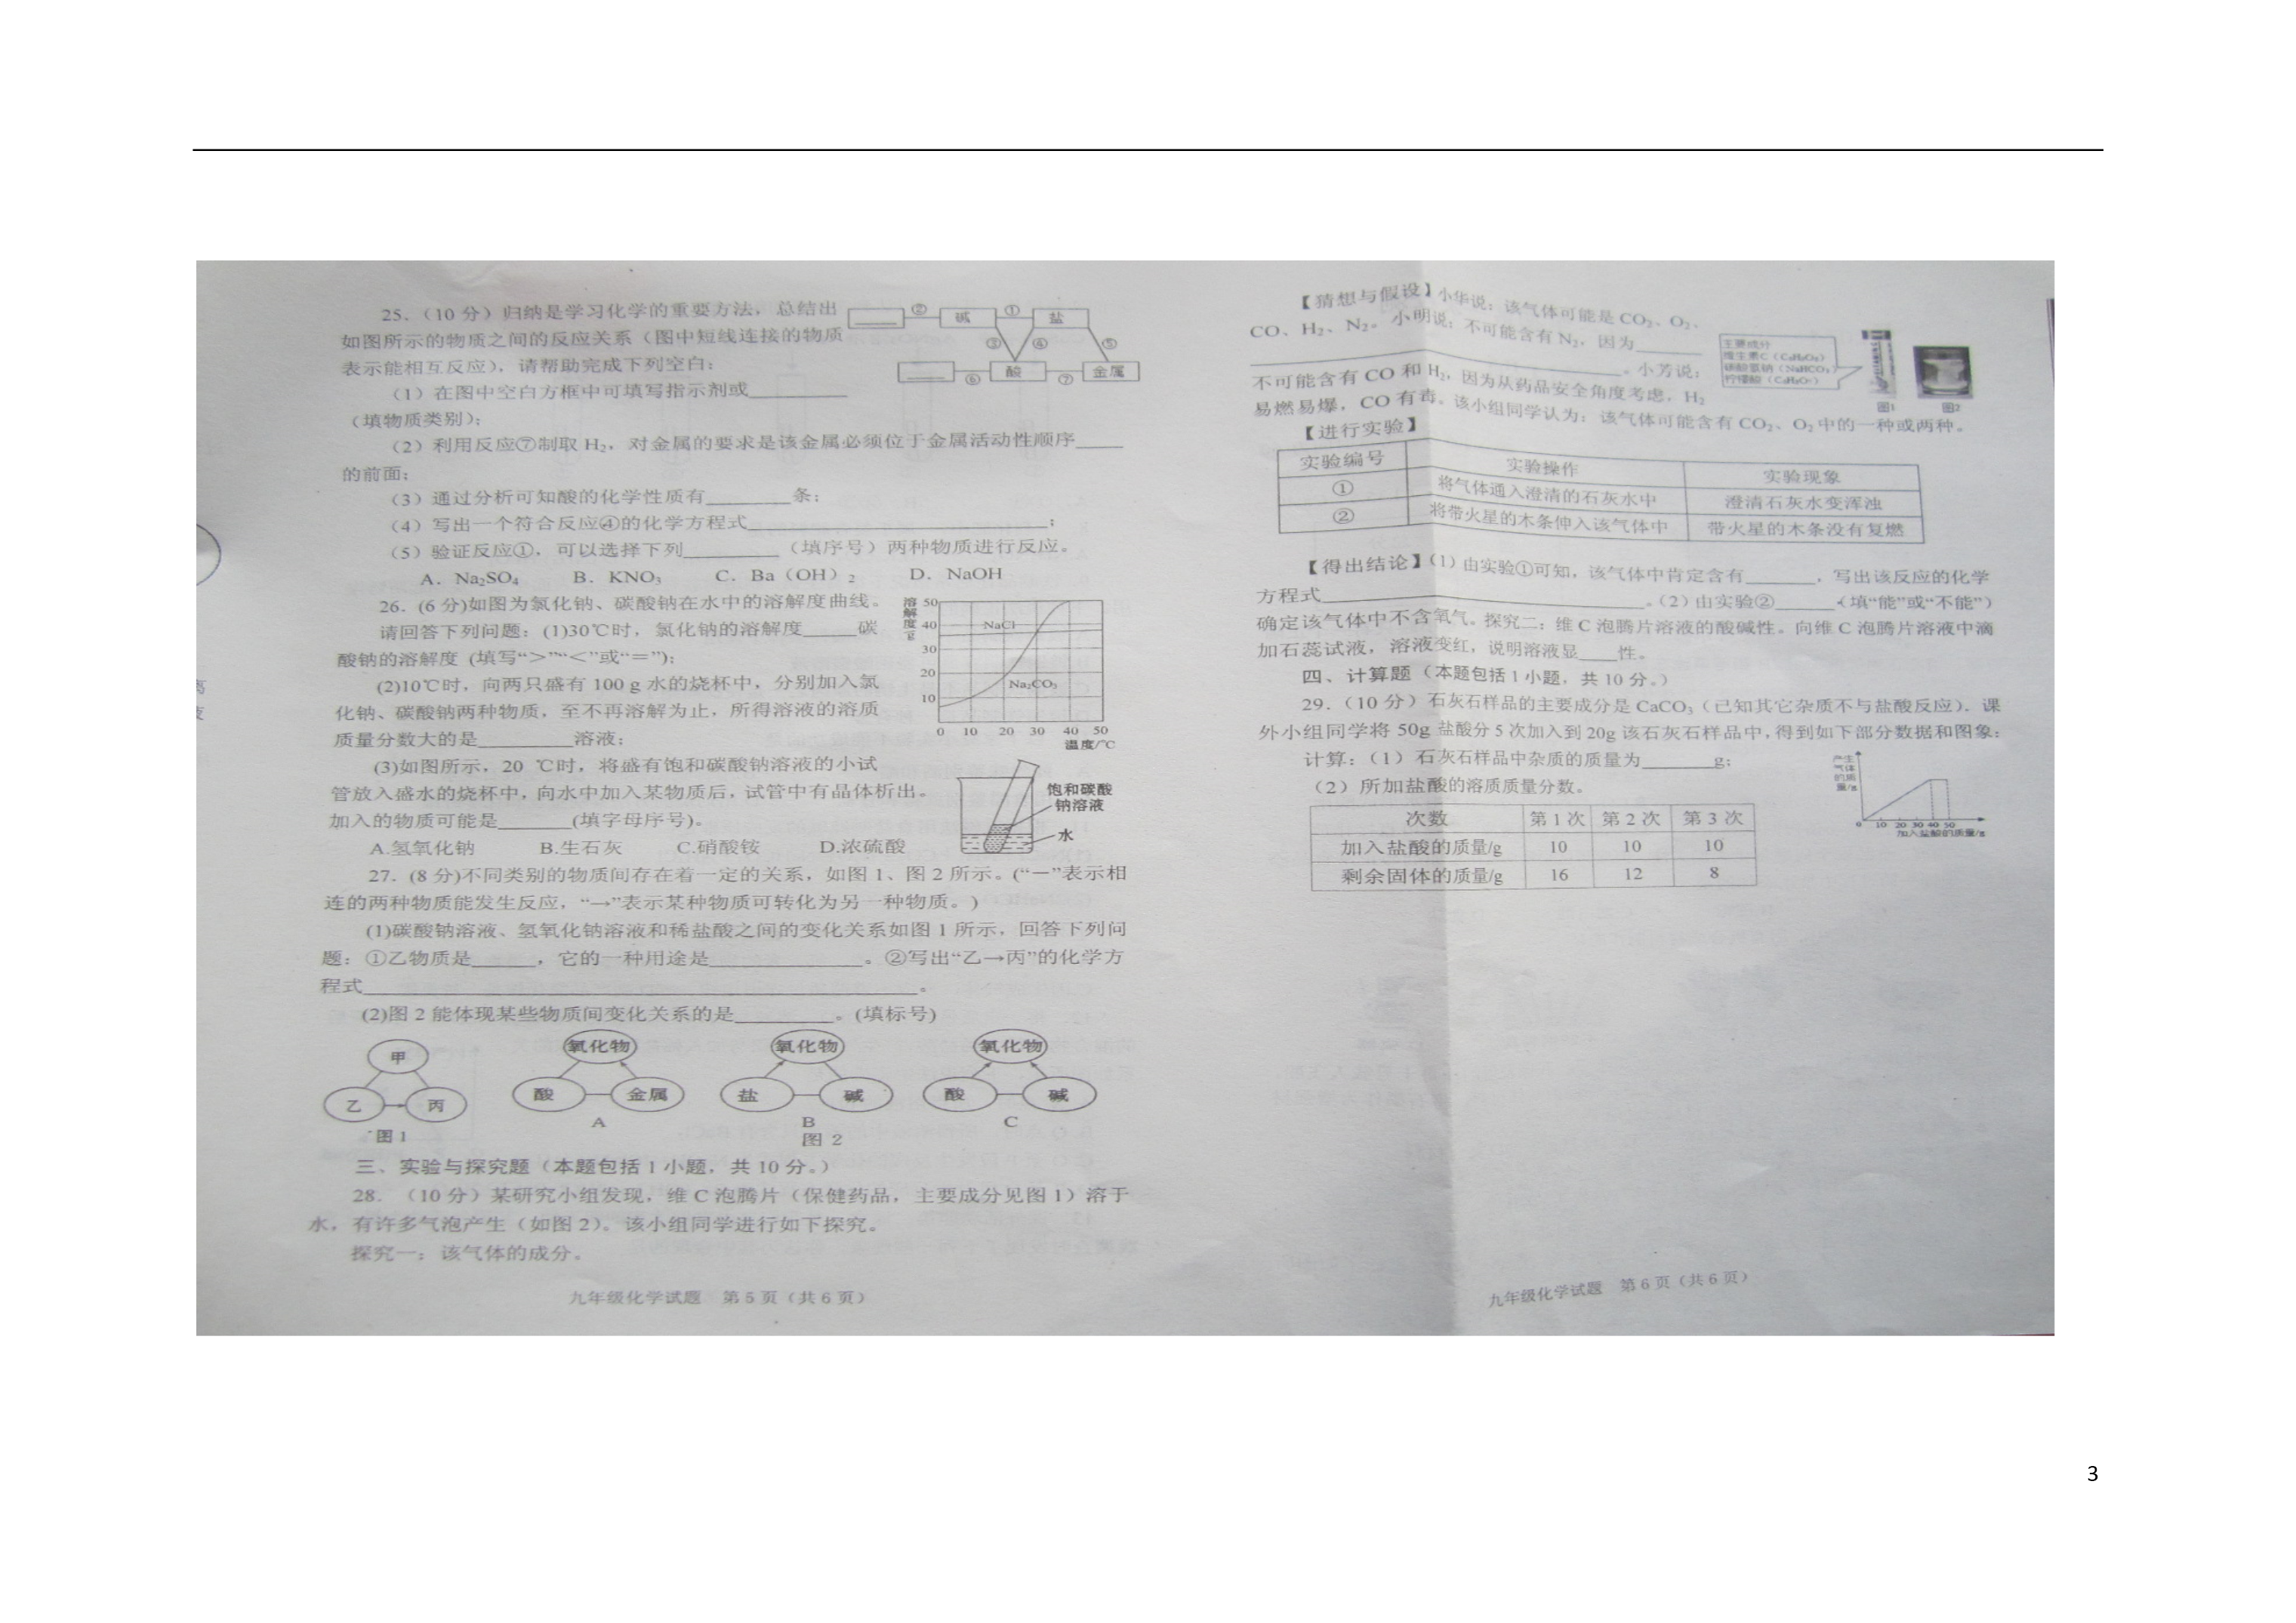 25.（10 分）归纳是学习化学的重要方法，总结出
如图所示的物质之间的反应关系（图中短线连接的物质
表示能相互反应），请帮助完成下列空白：
（1）在图中空白方框中可填写指示剂或
（填物质类别）；
② 碱 ① 盐
③ ④ ⑤
⑥ 酸 ⑦ 金属
（2）利用反应⑦制取 H₂，对金属的要求是该金属必须位于金属活动性顺序
的前面；
（3）通过分析可知酸的化学性质有 条；
（4）写出一个符合反应④的化学方程式 ；
（5）验证反应①，可以选择下列 （填序号）两种物质进行反应。
A．Na₂SO₄ B．KNO₃ C．Ba（OH）₂ D．NaOH
26．(6 分)如图为氯化钠、碳酸钠在水中的溶解度曲线。
请回答下列问题：(1)30℃时，氯化钠的溶解度 碳
酸钠的溶解度 (填写“>”“<”或“=”)；
(2)10℃时，向两只盛有 100 g 水的烧杯中，分别加入氯
化钠、碳酸钠两种物质，至不再溶解为止，所得溶液的溶质
质量分数大的是 溶液；
溶解度/g
50
40
30
20
10
NaCl
Na₂CO₃
0 10 20 30 40 50
温度/℃
(3)如图所示，20 ℃时，将盛有饱和碳酸钠溶液的小试
管放入盛水的烧杯中，向水中加入某物质后，试管中有晶体析出。
加入的物质可能是 (填字母序号)。
A.氢氧化钠 B.生石灰 C.硝酸铵 D.浓硫酸
饱和碳酸
钠溶液
水
27．(8 分)不同类别的物质间存在着一定的关系，如图 1、图 2 所示。(“－”表示相
连的两种物质能发生反应，“→”表示某种物质可转化为另一种物质。)
(1)碳酸钠溶液、氢氧化钠溶液和稀盐酸之间的变化关系如图 1 所示，回答下列问
题：①乙物质是 ，它的一种用途是 。②写出“乙→丙”的化学方
程式 。
(2)图 2 能体现某些物质间变化关系的是 。(填标号)
甲
乙 丙
图 1
氧化物
酸 金属
A
氧化物
盐 碱
B
氧化物
酸 碱
C
图 2
三、实验与探究题（本题包括 1 小题，共 10 分。）
28．（10 分）某研究小组发现，维 C 泡腾片（保健药品，主要成分见图 1）溶于
水，有许多气泡产生（如图 2）。该小组同学进行如下探究。
探究一：该气体的成分。
九年级化学试题 第 5 页（共 6 页）
【猜想与假设】小华说：该气体可能是 CO₂、O₂、
CO、H₂、N₂。小明说：不可能含有 N₂，因为
。小芳说：
不可能含有 CO 和 H₂，因为从药品安全角度考虑，H₂
易燃易爆，CO 有毒。该小组同学认为：该气体可能含有 CO₂、O₂ 中的一种或两种。
主要成分
维生素C（C₆H₈O₆）
碳酸氢钠（NaHCO₃）
柠檬酸（C₆H₈O₇）
图1 图2
【进行实验】
实验编号 实验操作 实验现象
① 将气体通入澄清的石灰水中 澄清石灰水变浑浊
② 将带火星的木条伸入该气体中 带火星的木条没有复燃
【得出结论】(1) 由实验①可知，该气体中肯定含有 ，写出该反应的化学
方程式 。(2) 由实验② （填“能”或“不能”）
确定该气体中不含氧气。探究二：维 C 泡腾片溶液的酸碱性。向维 C 泡腾片溶液中滴
加石蕊试液，溶液变红，说明溶液显 性。
四、计算题（本题包括 1 小题，共 10 分。）
29．（10 分）石灰石样品的主要成分是 CaCO₃（已知其它杂质不与盐酸反应）．课
外小组同学将 50g 盐酸分 5 次加入到 20g 该石灰石样品中，得到如下部分数据和图象：
计算：（1）石灰石样品中杂质的质量为 g；
（2）所加盐酸的溶质质量分数。
次数 第 1 次 第 2 次 第 3 次
加入盐酸的质量/g 10 10 10
剩余固体的质量/g 16 12 8
产生
气体
的质
量/g
0 10 20 30 40 50
加入盐酸的质量/g
九年级化学试题 第 6 页（共 6 页）
3